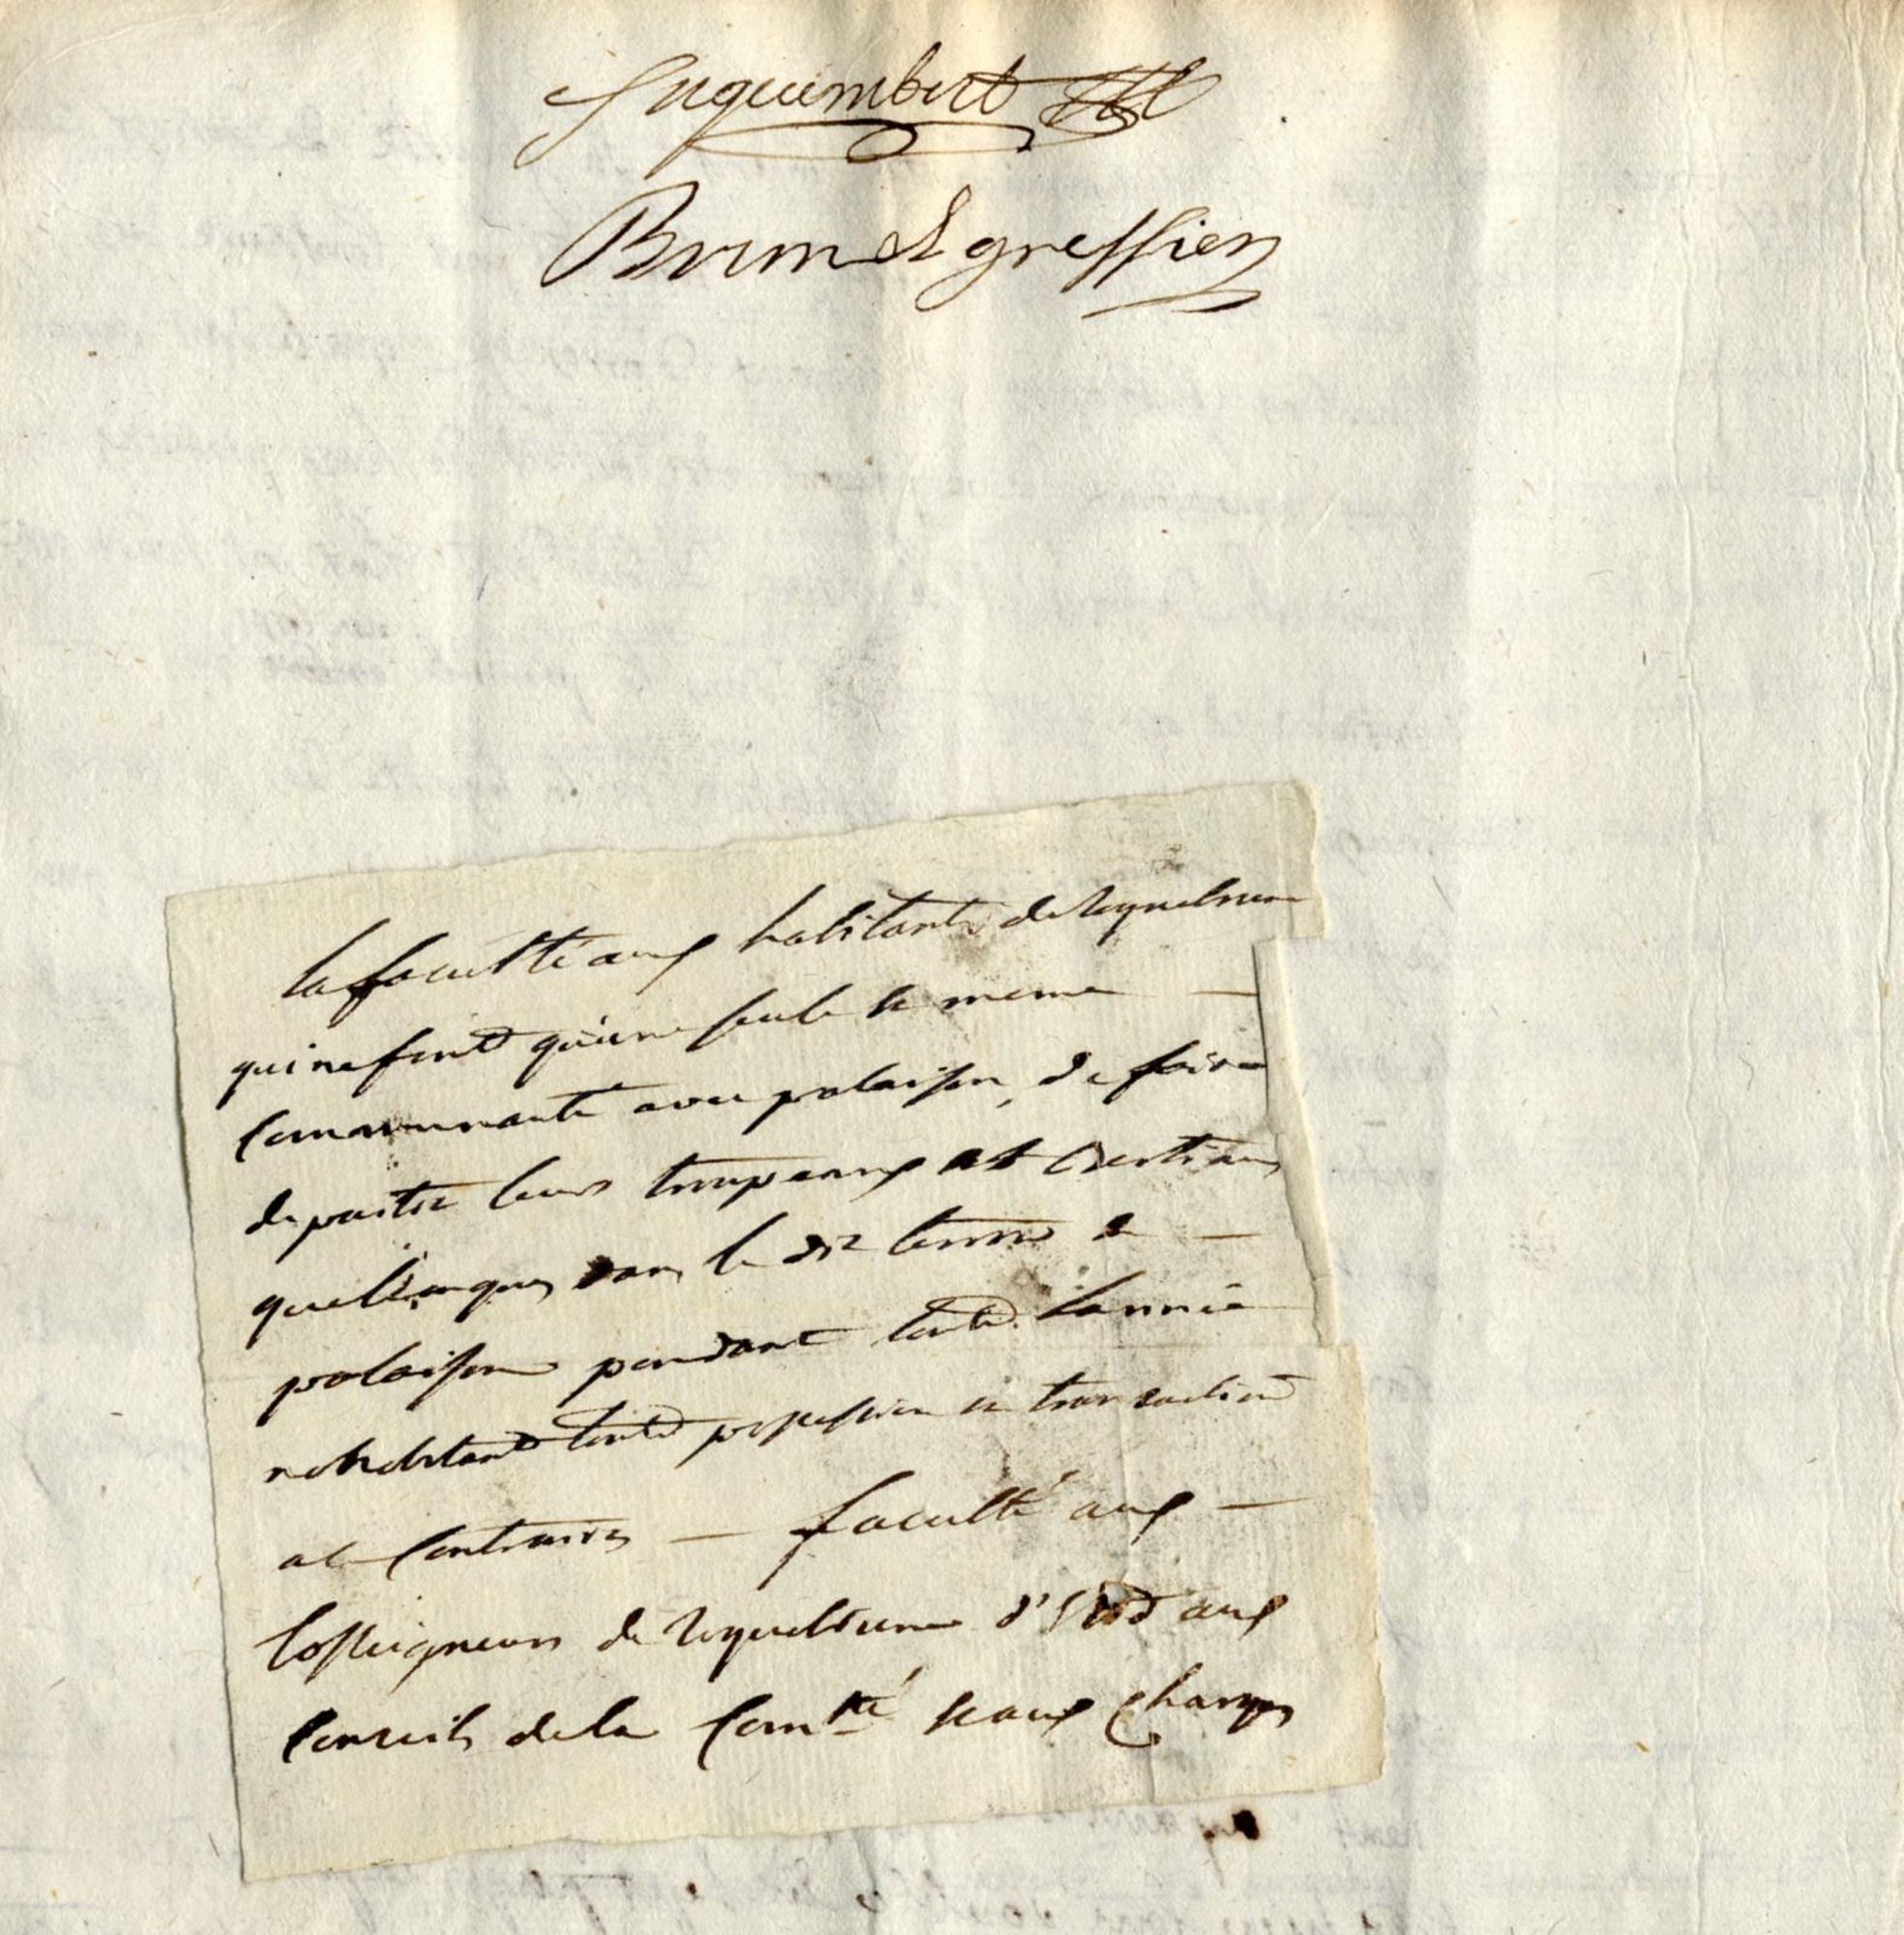 Inguimbert
Brunet greffier
la faculté aux habitants de Roquebrune
qui ne font qu'une seule et meme
Communauté avec palaison, de faire
depaitre leurs troupeaux et bestiaux
quelconques dans le dit terroir de
palaison pendant toute l'année
nohobstant toute possession et transaction
au Contraire — faculté aux —
Cosseigneurs de Roquebrune d' aux
Conseils de la Com.té et aux charges